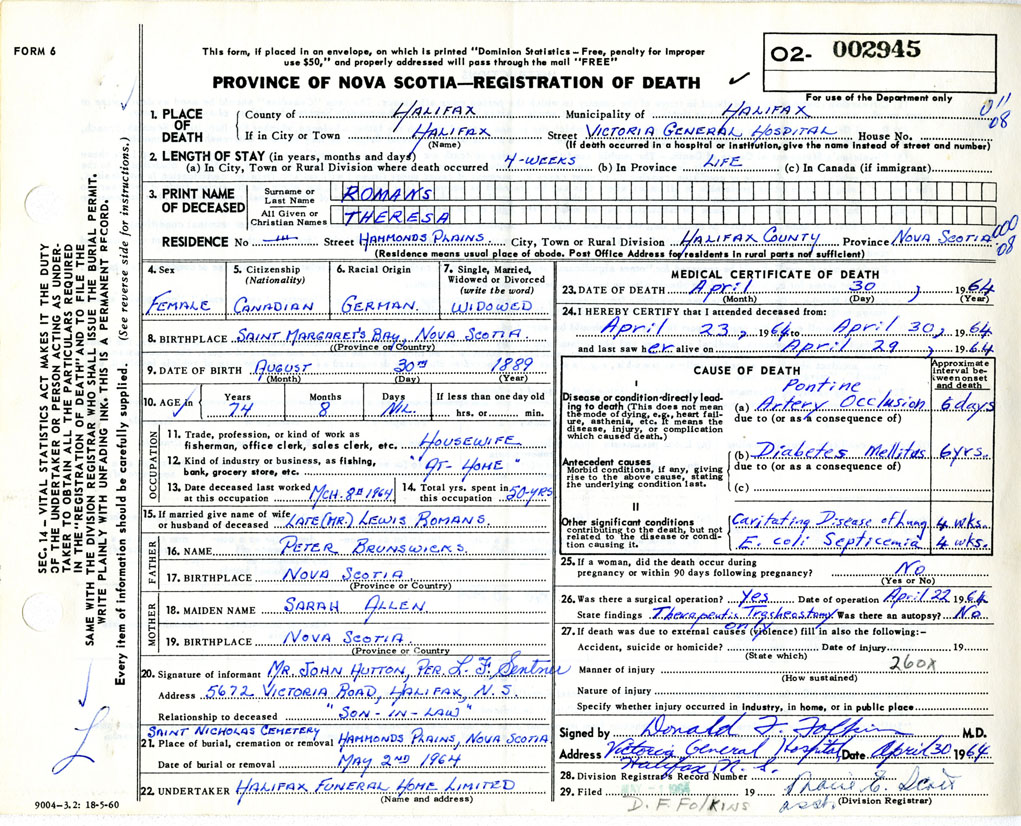 FORM 6
This form, if placed in an envelope, on which is printed "Dominion Statistics – Free, penalty for improper
use $50," and properly addressed will pass through the mail "FREE"
O2- 002945
PROVINCE OF NOVA SCOTIA—REGISTRATION OF DEATH ✓
For use of the Department only
1. PLACE OF DEATH
County of HALIFAX Municipality of HALIFAX 011
If in City or Town HALIFAX Street VICTORIA GENERAL HOSPITAL House No. 08
(Name) (If death occurred in a hospital or institution, give the name instead of street and number)
2. LENGTH OF STAY (in years, months and days)
(a) In City, Town or Rural Division where death occurred 4-WEEKS (b) In Province LIFE (c) In Canada (if immigrant)
3. PRINT NAME OF DECEASED
Surname or Last Name ROMANS
All Given or Christian Names THERESA
RESIDENCE No Street HAMMONDS PLAINS City, Town or Rural Division HALIFAX COUNTY Province NOVA SCOTIA 000
08
(Residence means usual place of abode. Post Office Address for residents in rural parts not sufficient)
4. Sex FEMALE
5. Citizenship (Nationality) CANADIAN
6. Racial Origin GERMAN.
7. Single, Married, Widowed or Divorced (write the word) WIDOWED
8. BIRTHPLACE SAINT MARGARET'S BAY, NOVA SCOTIA.
(Province or Country)
9. DATE OF BIRTH AUGUST 30TH 1889
(Month) (Day) (Year)
10. AGE in Years 74 Months 8 Days NIL. If less than one day old hrs. or min.
OCCUPATION
11. Trade, profession, or kind of work as
fisherman, office clerk, sales clerk, etc. HOUSEWIFE
12. Kind of industry or business, as fishing,
bank, grocery store, etc. "AT-HOME"
13. Date deceased last worked at this occupation MCH. 8TH 1964
14. Total yrs. spent in this occupation 50-YRS
15. If married give name of wife
or husband of deceased LATE (MR.) LEWIS ROMANS.
FATHER
16. NAME PETER BRUNSWICKS.
17. BIRTHPLACE NOVA SCOTIA
(Province or Country)
MOTHER
18. MAIDEN NAME SARAH ALLEN
19. BIRTHPLACE NOVA SCOTIA
(Province or Country)
20. Signature of informant MR. JOHN HUTTON, PER. L. F. Sentner
Address 5672 VICTORIA ROAD, HALIFAX, N.S
Relationship to deceased "SON-IN-LAW"
SAINT NICHOLAS CEMETERY
21. Place of burial, cremation or removal HAMMONDS PLAINS, NOVA SCOTIA.
Date of burial or removal MAY 2ND 1964
22. UNDERTAKER HALIFAX FUNERAL HOME LIMITED
(Name and address)
MEDICAL CERTIFICATE OF DEATH
23. DATE OF DEATH April 30, 1964
(Month) (Day) (Year)
24. I HEREBY CERTIFY that I attended deceased from:
April 23, 1964 to April 30, 1964
and last saw her alive on April 29, 1964
CAUSE OF DEATH
Approximate interval between onset and death
I
Disease or condition directly leading to death (This does not mean the mode of dying, e.g., heart failure, asthenia, etc. It means the disease, injury, or complication which caused death.)
Pontine
(a) Artery Occlusion 6 days
due to (or as a consequence of)
Antecedent causes
Morbid conditions, if any, giving rise to the above cause, stating the underlying condition last.
(b) Diabetes Mellitus 6 yrs.
due to (or as a consequence of)
(c)
II
Other significant conditions contributing to the death, but not related to the disease or condition causing it.
Cavitating Disease of Lung 4 wks.
E. coli Septicemia 4 wks.
25. If a woman, did the death occur during
pregnancy or within 90 days following pregnancy? No
(Yes or No)
26. Was there a surgical operation? Yes Date of operation April 22 1964
State findings Therapeutic Tracheostomy only Was there an autopsy? No
27. If death was due to external causes (violence) fill in also the following:—
Accident, suicide or homicide? Date of injury 19
(State which)
Manner of injury 260X
(How sustained)
Nature of injury
Specify whether injury occurred in industry, in home, or in public place
Signed by Donald F. Folkins M.D.
Address Victoria General Hospital, Date April 30 1964
Halifax N.S.
28. Division Registrar's Record Number
29. Filed 19
(Division Registrar)
D. F. FOLKINS asst.
SEC. 14 – VITAL STATISTICS ACT MAKES IT THE DUTY
OF THE UNDERTAKER OR PERSON ACTING AS UNDER-
TAKER TO OBTAIN ALL THE PARTICULARS REQUIRED
IN THE "REGISTRATION OF DEATH" AND TO FILE THE
SAME WITH THE DIVISION REGISTRAR WHO SHALL ISSUE THE BURIAL PERMIT.
WRITE PLAINLY WITH UNFADING INK. THIS IS A PERMANENT RECORD.
Every item of information should be carefully supplied. (See reverse side for instructions.)
9004–3.2: 18-5-60